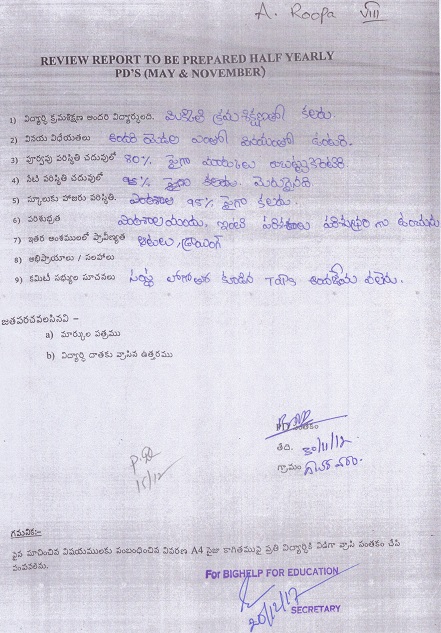 A. Roopa VIII
REVIEW REPORT TO BE PREPARED HALF YEARLY
PD'S (MAY & NOVEMBER)
1) విద్యార్థి క్రమశిక్షణ అందరి విద్యార్థులది. మిక్కిలి క్రమశిక్షణతో కలదు.
2) వినయ విధేయతలు అందరి యెడల ఎంతో వినయంతో ఉంటుంది.
3) పూర్వపు పరిస్థితి చదువులో 80% పైగా మార్కులు
4) నేటి పరిస్థితి చదువులో పైగా కలదు. మెరుగైనది
5) స్కూలుకు హాజరు పరిస్థితి. 95% పైగా కలదు.
6) పరిశుభ్రత ఇంటి పరిసరాలు పరిశుభ్రం గా
7) ఇతర అంశములలో ప్రావీణ్యత ఆటలు, డ్రాయింగ్
8) అభిప్రాయాలు / సలహాలు
9) కమిటీ సభ్యుల సూచనలు కూడిన వలెను.
జతపరచవలసినవి :-
a) మార్కుల పత్రము
b) విద్యార్థి దాతకు వ్రాసిన ఉత్తరము
సంతకం
తేది. 30/11/17
గ్రామం
15/12
గమనిక:-
పైన సూచించిన విషయములకు సంబంధించిన వివరణ A4 సైజు కాగితముపై ప్రతి విద్యార్థికి విడిగా వ్రాసి సంతకం చేసి
పంపవలెను.
For BIGHELP FOR EDUCATION
20/12/17
SECRETARY